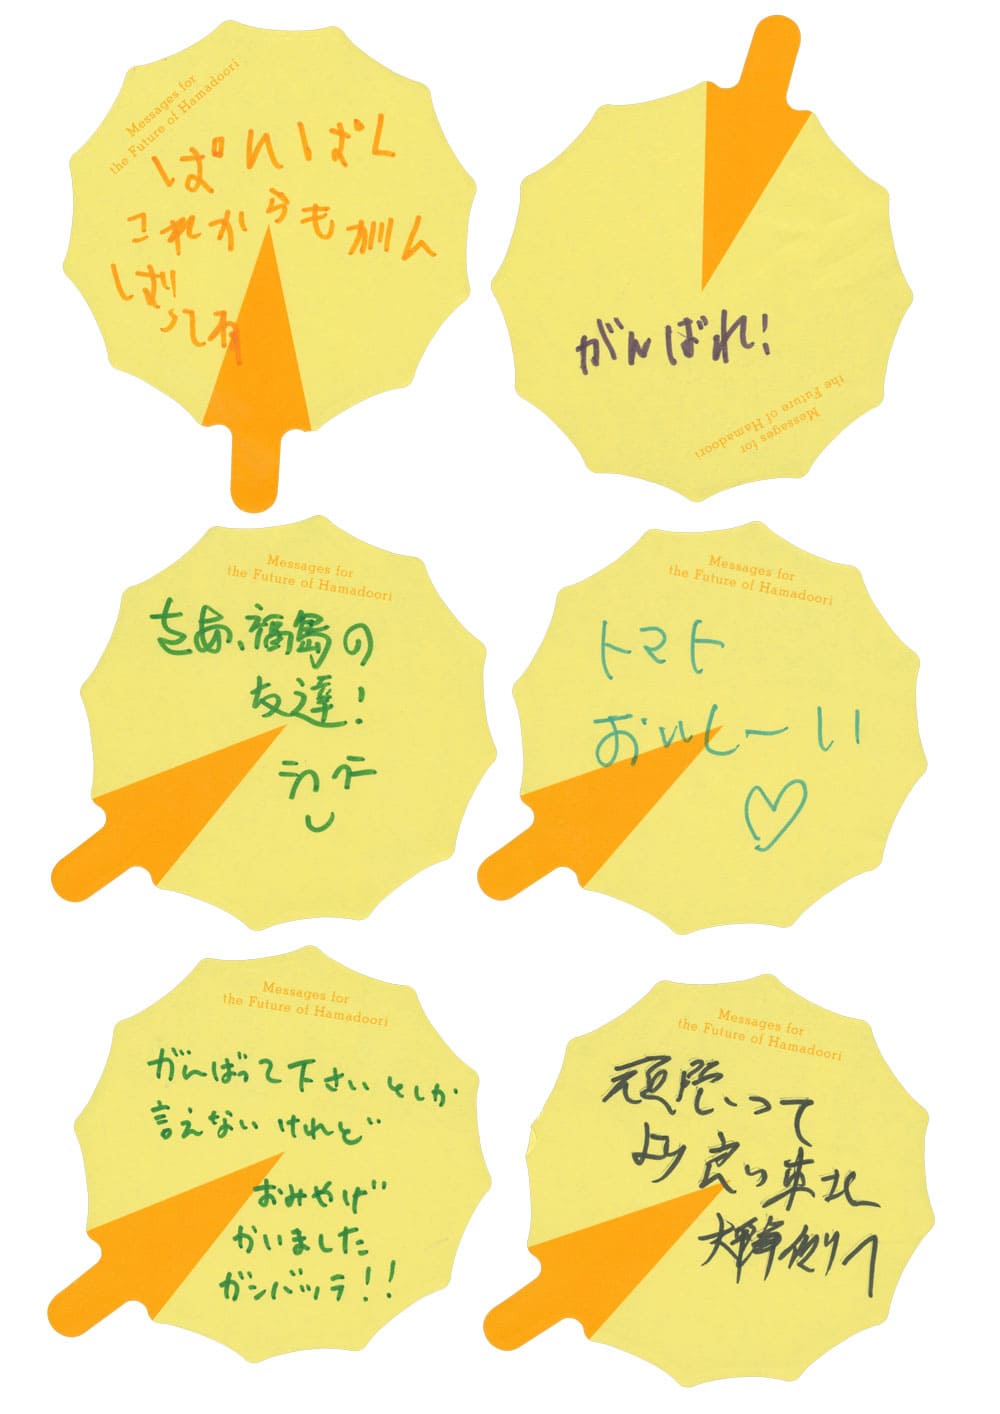 Messages for
the Future of Hamadoori
ばんばく
これからもがん
ばってね
がんばれ!
Messages for
the Future of Hamadoori
Messages for
the Future of Hamadoori
さあ、福島の
友達!
Messages for
the Future of Hamadoori
トマト
おいし〜い
Messages for
the Future of Hamadoori
がんばって下さいとしか
言えないけれど
おみやげ
かいました
ガンバッテ!!
Messages for
the Future of Hamadoori
頑張って
より良い東北